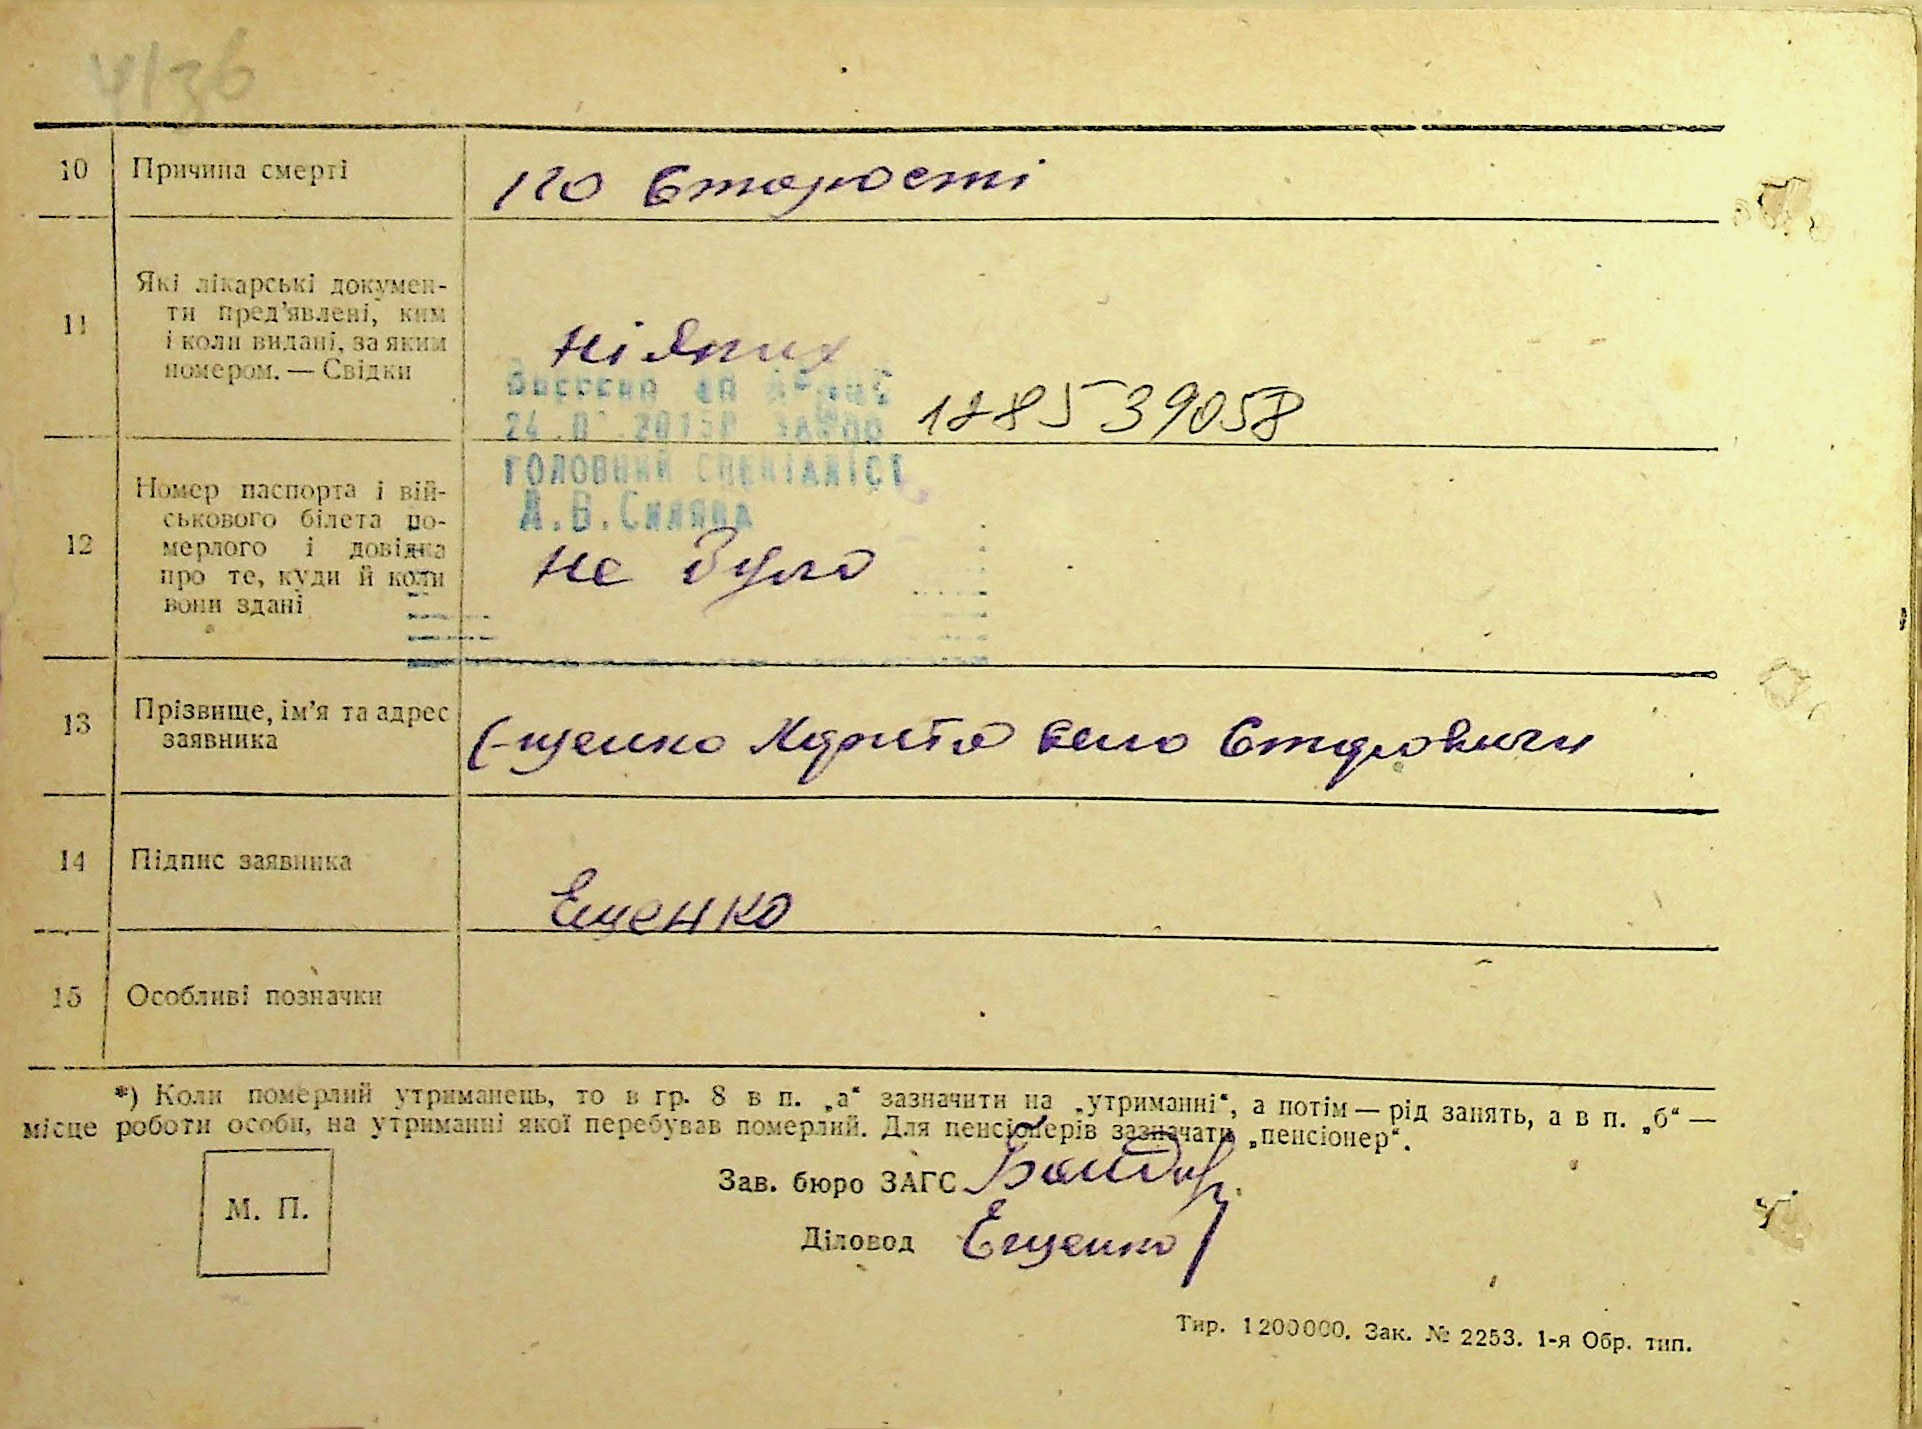 4136
10 Причина смерті по старості
11 Які лікарські докумен-
ти пред’явлені, ким
і коли видані, за яким
номером. — Свідки
ніяких
24.0 .2015Р 12853 9058
ГОЛОВНИЙ СПЕЦІАЛІСТ
А.В.
12 Номер паспорта і вій-
ськового білета по-
мерлого і довідка
про те, куди й коли
вони здані
не було
13 Прізвище, ім’я та адрес
заявника
Єщенко село
14 Підпис заявника
Ещенко
15 Особливі позначки
*) Коли померлий утриманець, то в гр. 8 в п. „а“ зазначити на „утриманні“, а потім — рід занять, а в п. „б“ —
місце роботи особи, на утриманні якої перебував померлий. Для пенсіонерів зазначати „пенсіонер“.
Зав. бюро ЗАГС
М. П.
Діловод Єщенко
Тир. 1200000. Зак. № 2253. 1-я Обр. тип.